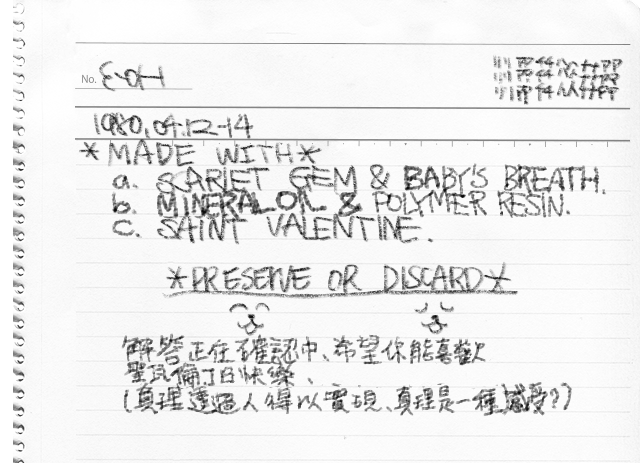 No. E-OH
1980.04.12-14
*MADE WITH*
a. SCARLET GEM & BABY'S BREATH.
b. MINERAL OIL & POLYMER RESIN.
c. SAINT VALENTINE.
*PRESERVE OR DISCARD*
解答正在確認中、希望你能喜歡
聖瓦倫丁日快樂、
(真理透過人得以實現、真理是一種感受?)